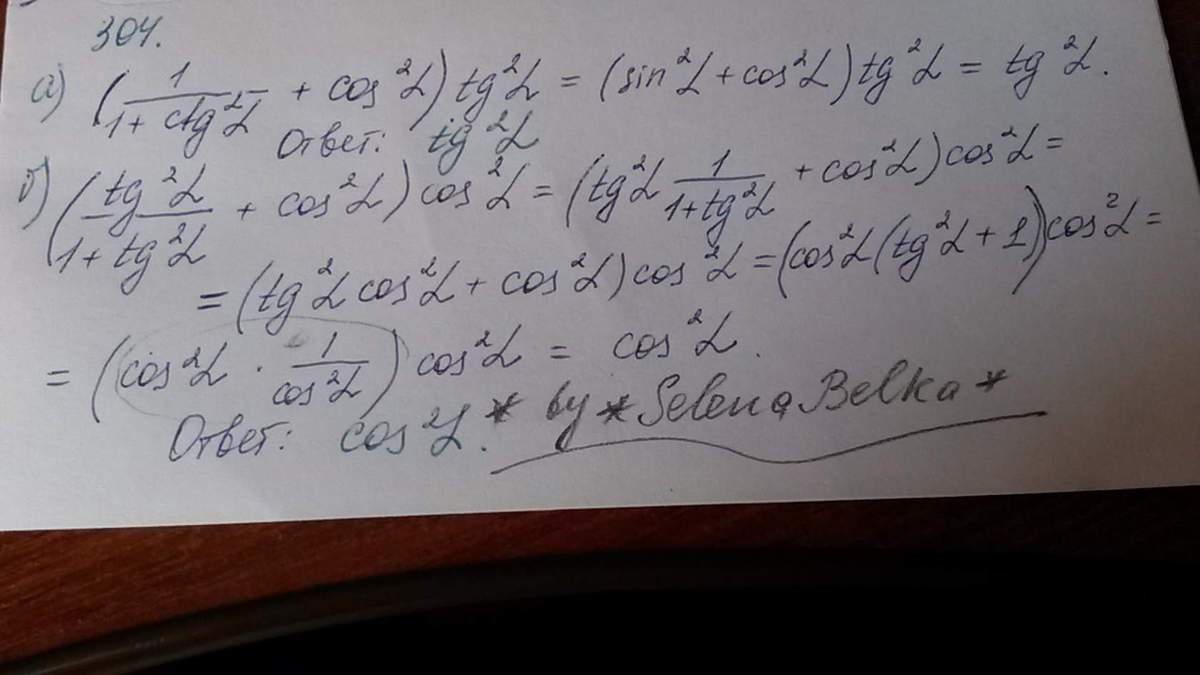 304.
а) (1/(1 + ctg²α) + cos²α) tg²α = (sin²α + cos²α) tg²α = tg²α.
Ответ: tg²α
б) (tg²α/(1 + tg²α) + cos²α) cos²α = (tg²α 1/(1+tg²α) + cos²α) cos²α =
= (tg²α cos²α + cos²α) cos²α = (cos²α (tg²α + 1)) cos²α =
= (cos²α · 1/cos²α) cos²α = cos²α.
Ответ: cos²α. * by * Selena Belka *